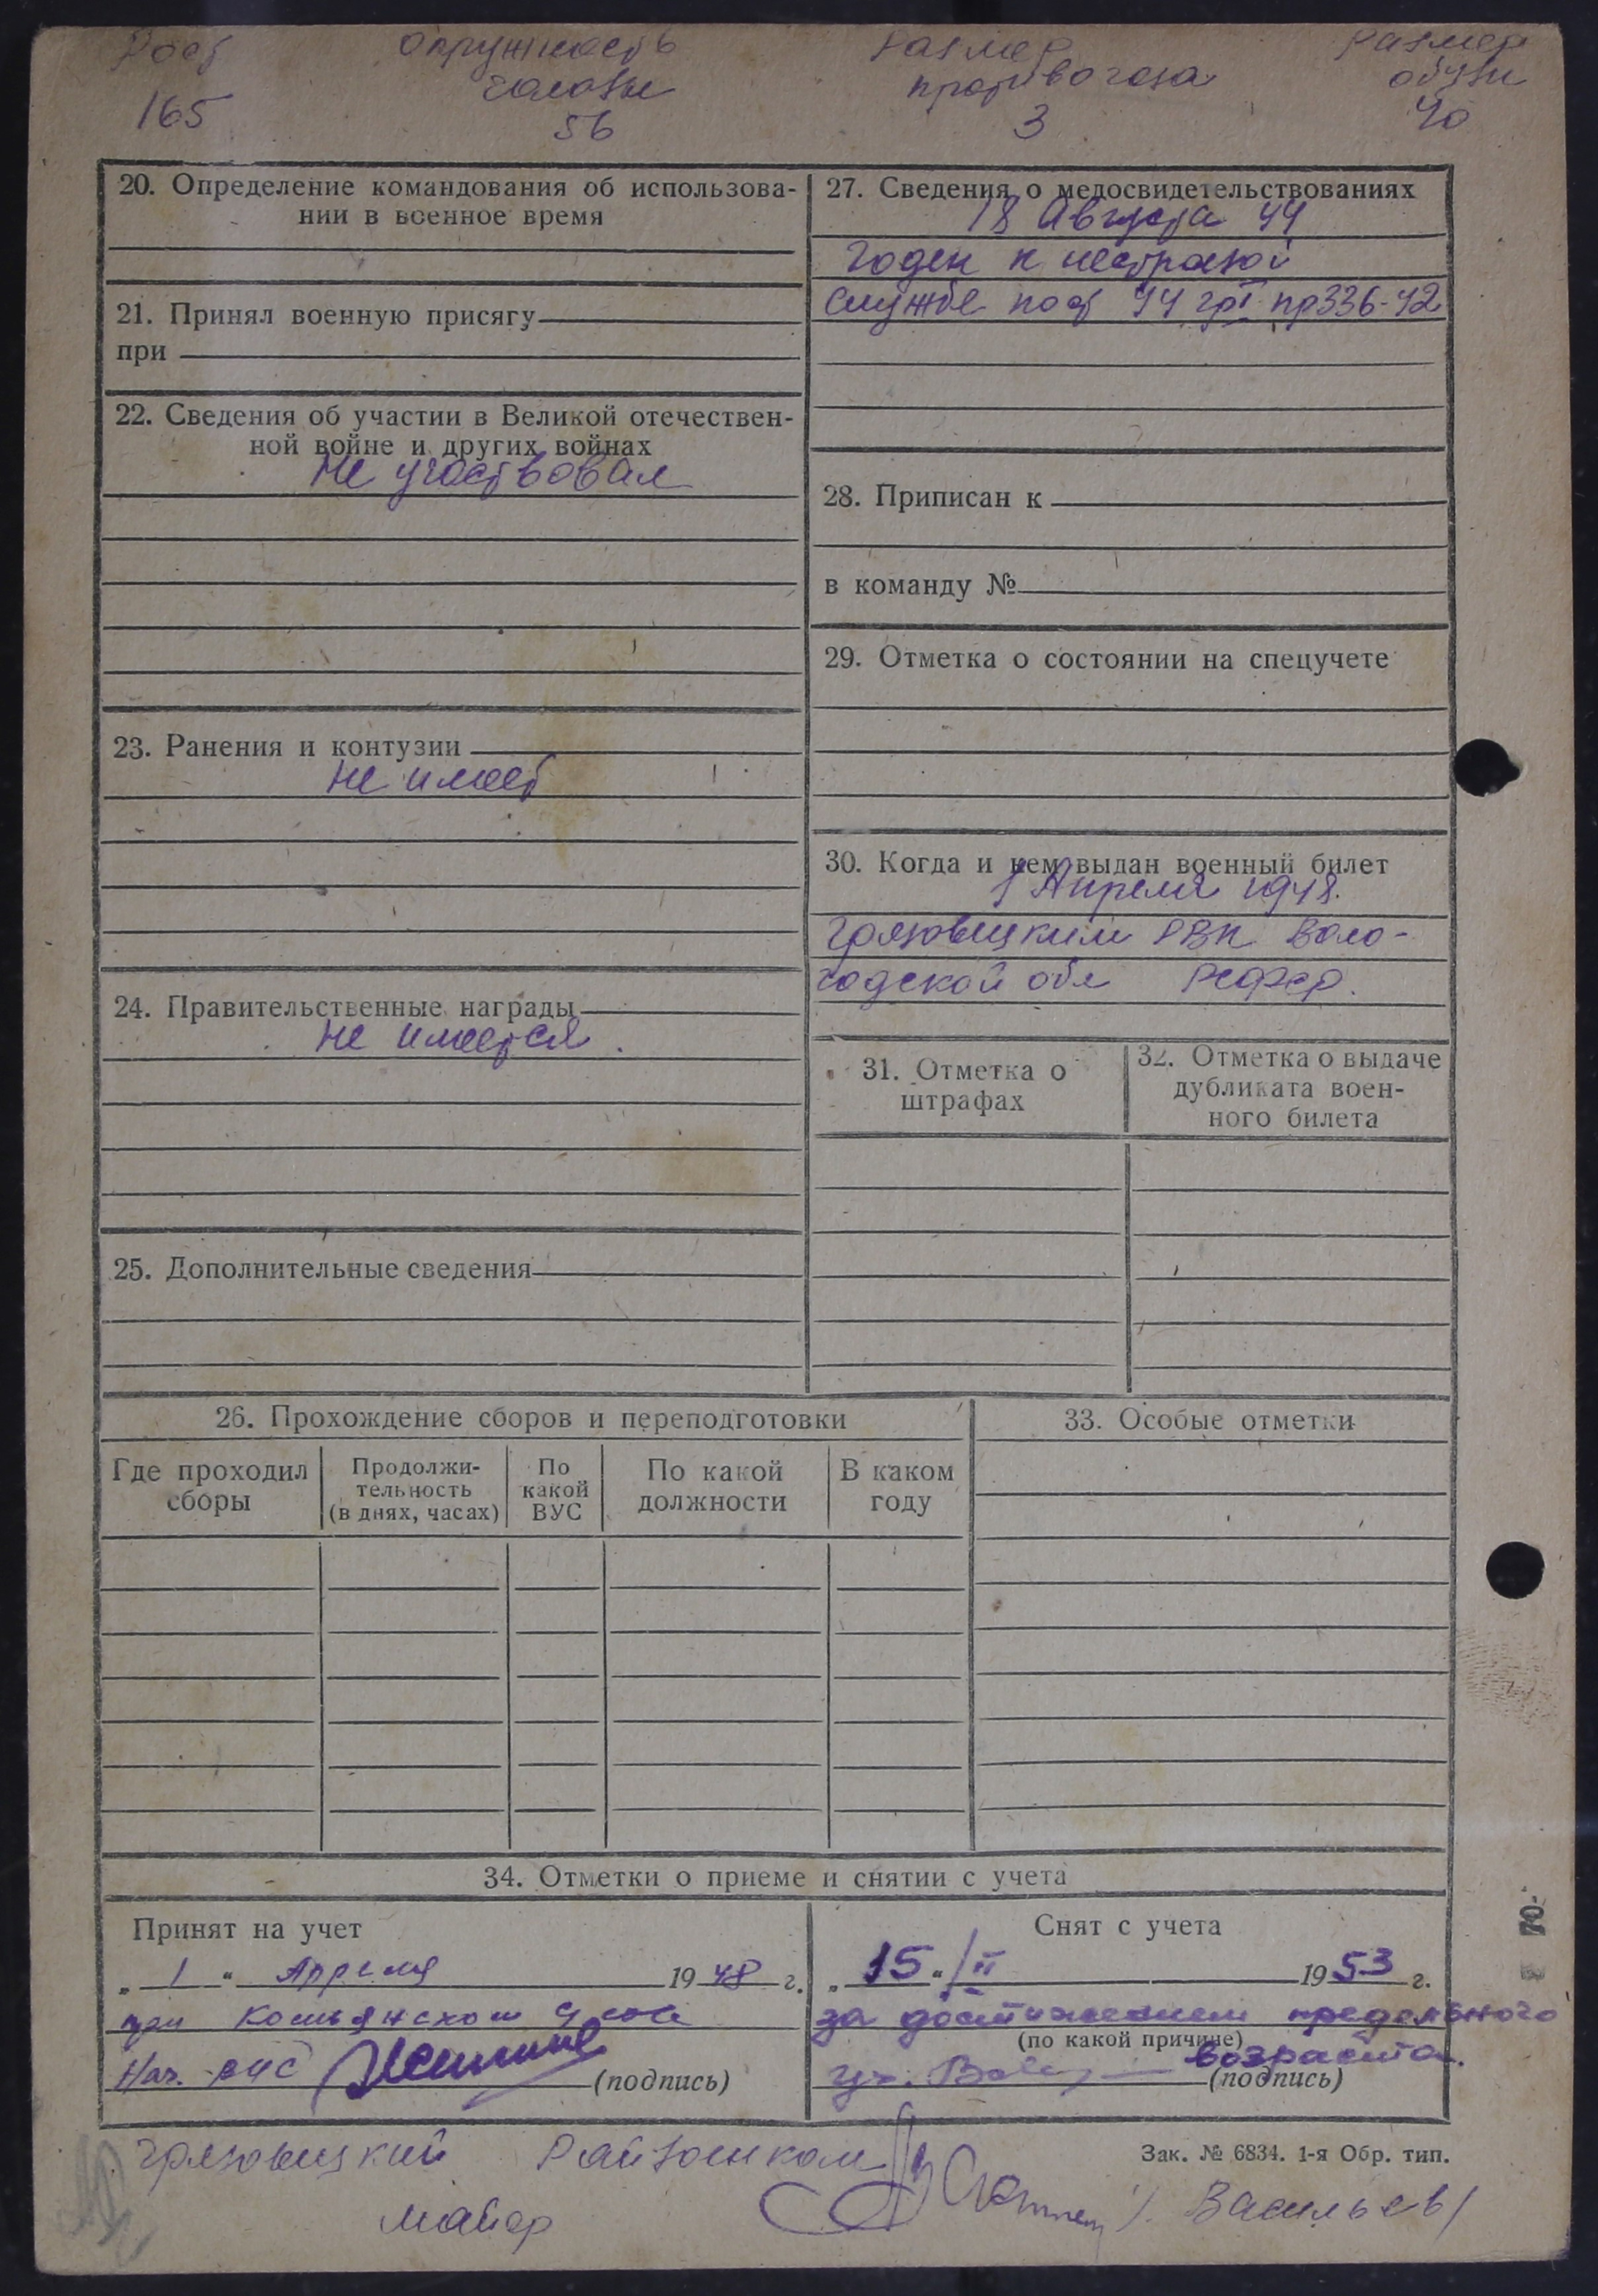 Рост Окружность Размер Размер
головы противогаза обуви
165 56 3 40
20. Определение командования об использова-
нии в военное время
21. Принял военную присягу
при
22. Сведения об участии в Великой отечествен-
ной войне и других войнах
Не участвовал
23. Ранения и контузии
не имеет
24. Правительственные награды
не имеется.
25. Дополнительные сведения
27. Сведения о медосвидетельствованиях
18 Августа 44
Годен к нестроевой
службе по ст 44 гр I пр 336-42
28. Приписан к
в команду №
29. Отметка о состоянии на спецучете
30. Когда и кем выдан военный билет
1 Апреля 1948.
Грязовецким РВК Воло-
годской обл РСФСР.
31. Отметка о
штрафах
32. Отметка о выдаче
дубликата воен-
ного билета
26. Прохождение сборов и переподготовки
Где проходил
сборы
Продолжи-
тельность
(в днях, часах)
По
какой
ВУС
По какой
должности
В каком
году
33. Особые отметки
34. Отметки о приеме и снятии с учета
Принят на учет
„ 1 “ Апреля 1948 г.
при
Нач. ВУС
(подпись)
Снят с учета
„ 15 “ /II 1953 г.
за достижением предельного
(по какой причине)
возраста.
(подпись)
Грязовецкий Райвоенком
Зак. № 6834. 1-я Обр. тип.
майор /Васильев/
70.